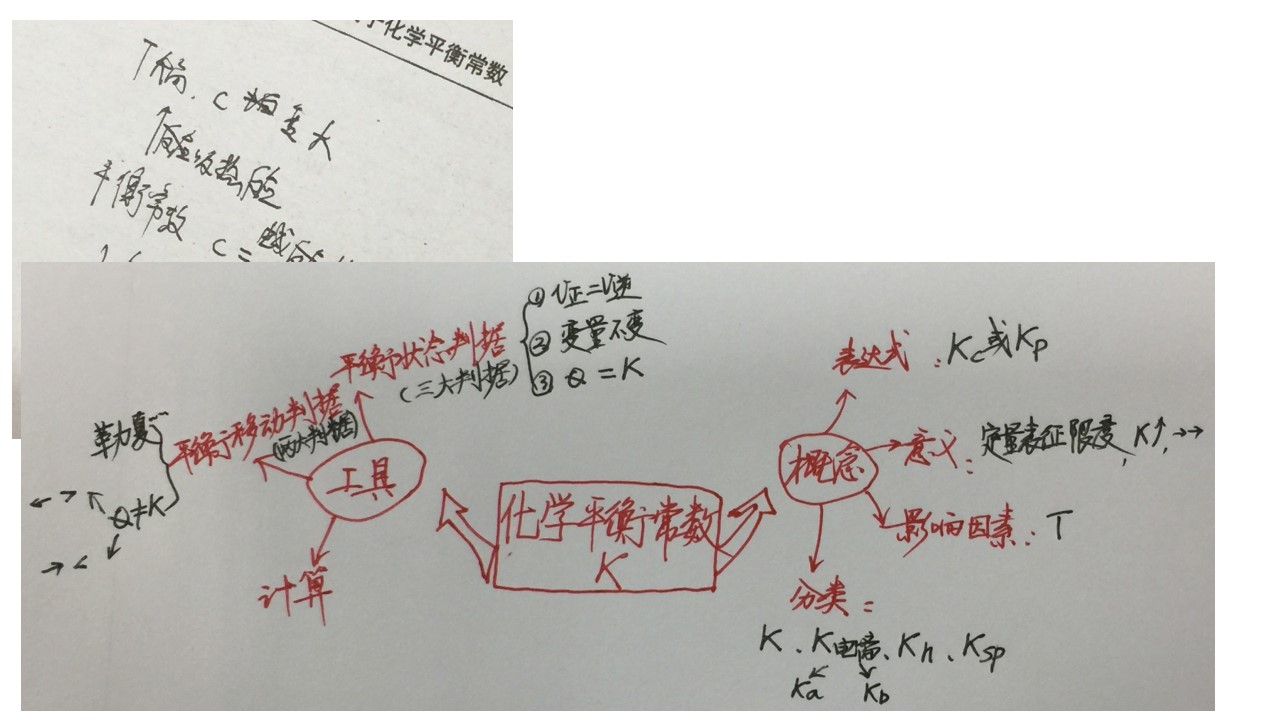 化学平衡常数
平衡常数
① V正=V逆
② 变量不变
③ Q = K
平衡状态判据
(三大判据)
平衡移动判据
(两大判据)
Q≠K
工具
计算
化学平衡常数
K
概念
表达式：Kc或Kp
意义：定量表征限度，K↑，→→
影响因素：T
分类：
K、K电离、Kh、Ksp
Ka Kb